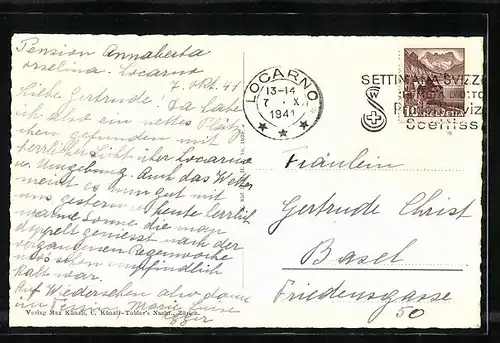 Pension Annaberta
Orselina. Locarno
7. Okt. 41
Liebe Gertrude! Da habe
ich also ein nettes Plätz-
chen gefunden mit
herrlicher Sicht über Locarno
u. Umgebung. Auch das Wetter
meint es nun gut mit
uns gestern u. heute herrlich
warme Sonne die man
doppelt geniesst nach der
vergangenen Regenwoche
wo es schon empfindlich
kalt war.
Auf Wiedersehen also dann
Marie Louise
Egger
Verlag Max Künzli, C. Künzli-Tobler's Nachf., Zürich.
LOCARNO
13-14
7. X.
1941
SETTIMANA SVIZZ
10
Fräulein
Gertrude Christ
Basel
Friedensgasse
50